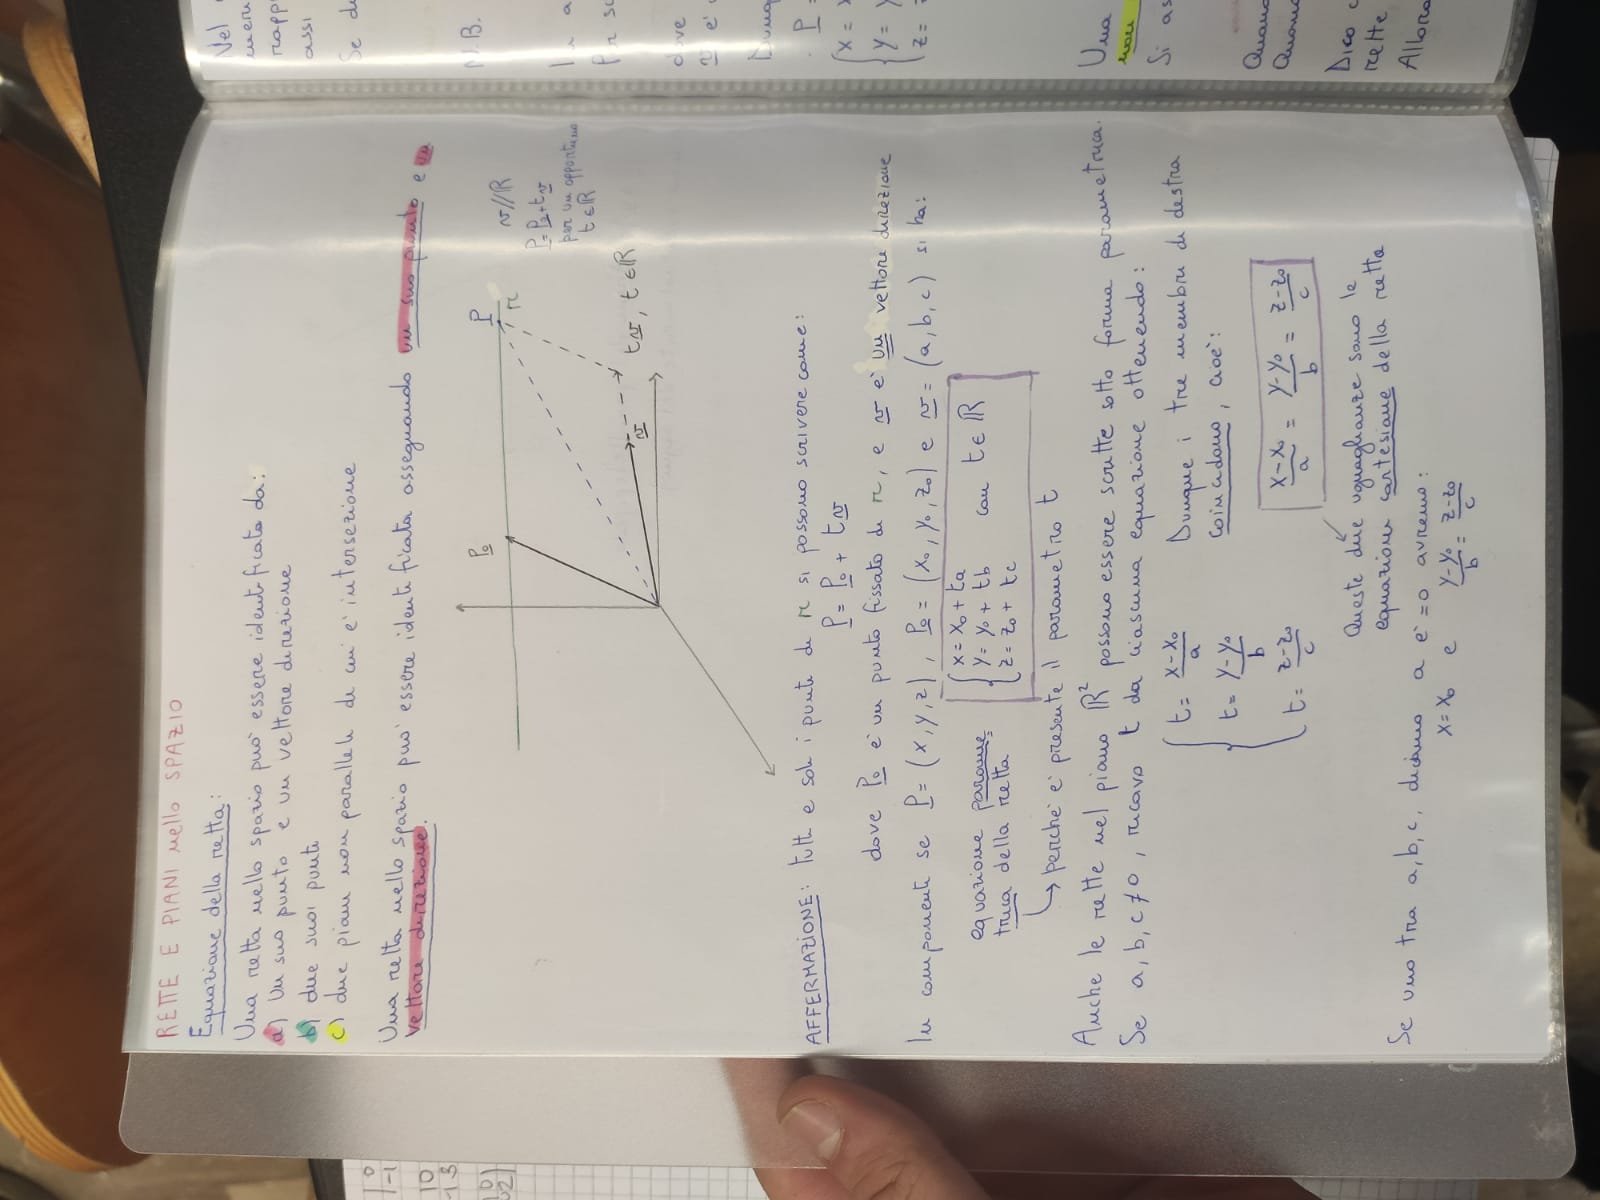 RETTE E PIANI nello SPAZIO
Equazione della retta:
Una retta nello spazio può essere identificata da:
a) Un suo punto e un vettore direzione
b) due suoi punti
c) due piani non paralleli di cui è intersezione
Una retta nello spazio può essere identificata assegnando un suo punto e un
vettore direzione.
P₀
P
r
v
tv, t∈ℝ
v//R
P=P₀+tv
per un opportuno
t∈ℝ
AFFERMAZIONE: tutti e soli i punti di r si possono scrivere come:
P= P₀ + tv
dove P₀ è un punto fissato di r, e v è un vettore direzione
In componenti se P= (x,y,z), P₀= (x₀,y₀,z₀) e v= (a,b,c) si ha:
equazione parame-
trica della retta
{ x= x₀ + ta
y= y₀ + tb con t∈ℝ
z= z₀ + tc
↳ perché è presente il parametro t
Anche le rette nel piano ℝ² possono essere scritte sotto forma parametrica.
Se a,b,c≠0, ricavo t da ciascuna equazione ottenendo:
{ t= x-x₀/a
t= y-y₀/b
t= z-z₀/c
Dunque i tre membri di destra
coincidono, cioè:
x-x₀/a = y-y₀/b = z-z₀/c
Queste due uguaglianze sono le
equazioni cartesiane della retta
Se uno tra a,b,c, diciamo a è =0 avremo:
x=x₀ e y-y₀/b = z-z₀/c
Nel
assi
Se di
N.B.
Per sc
dove
v è
P =
{ x=
y=
z=
Una
non
Si as
Quando
Dico c
rette
Allora
0
-1
10